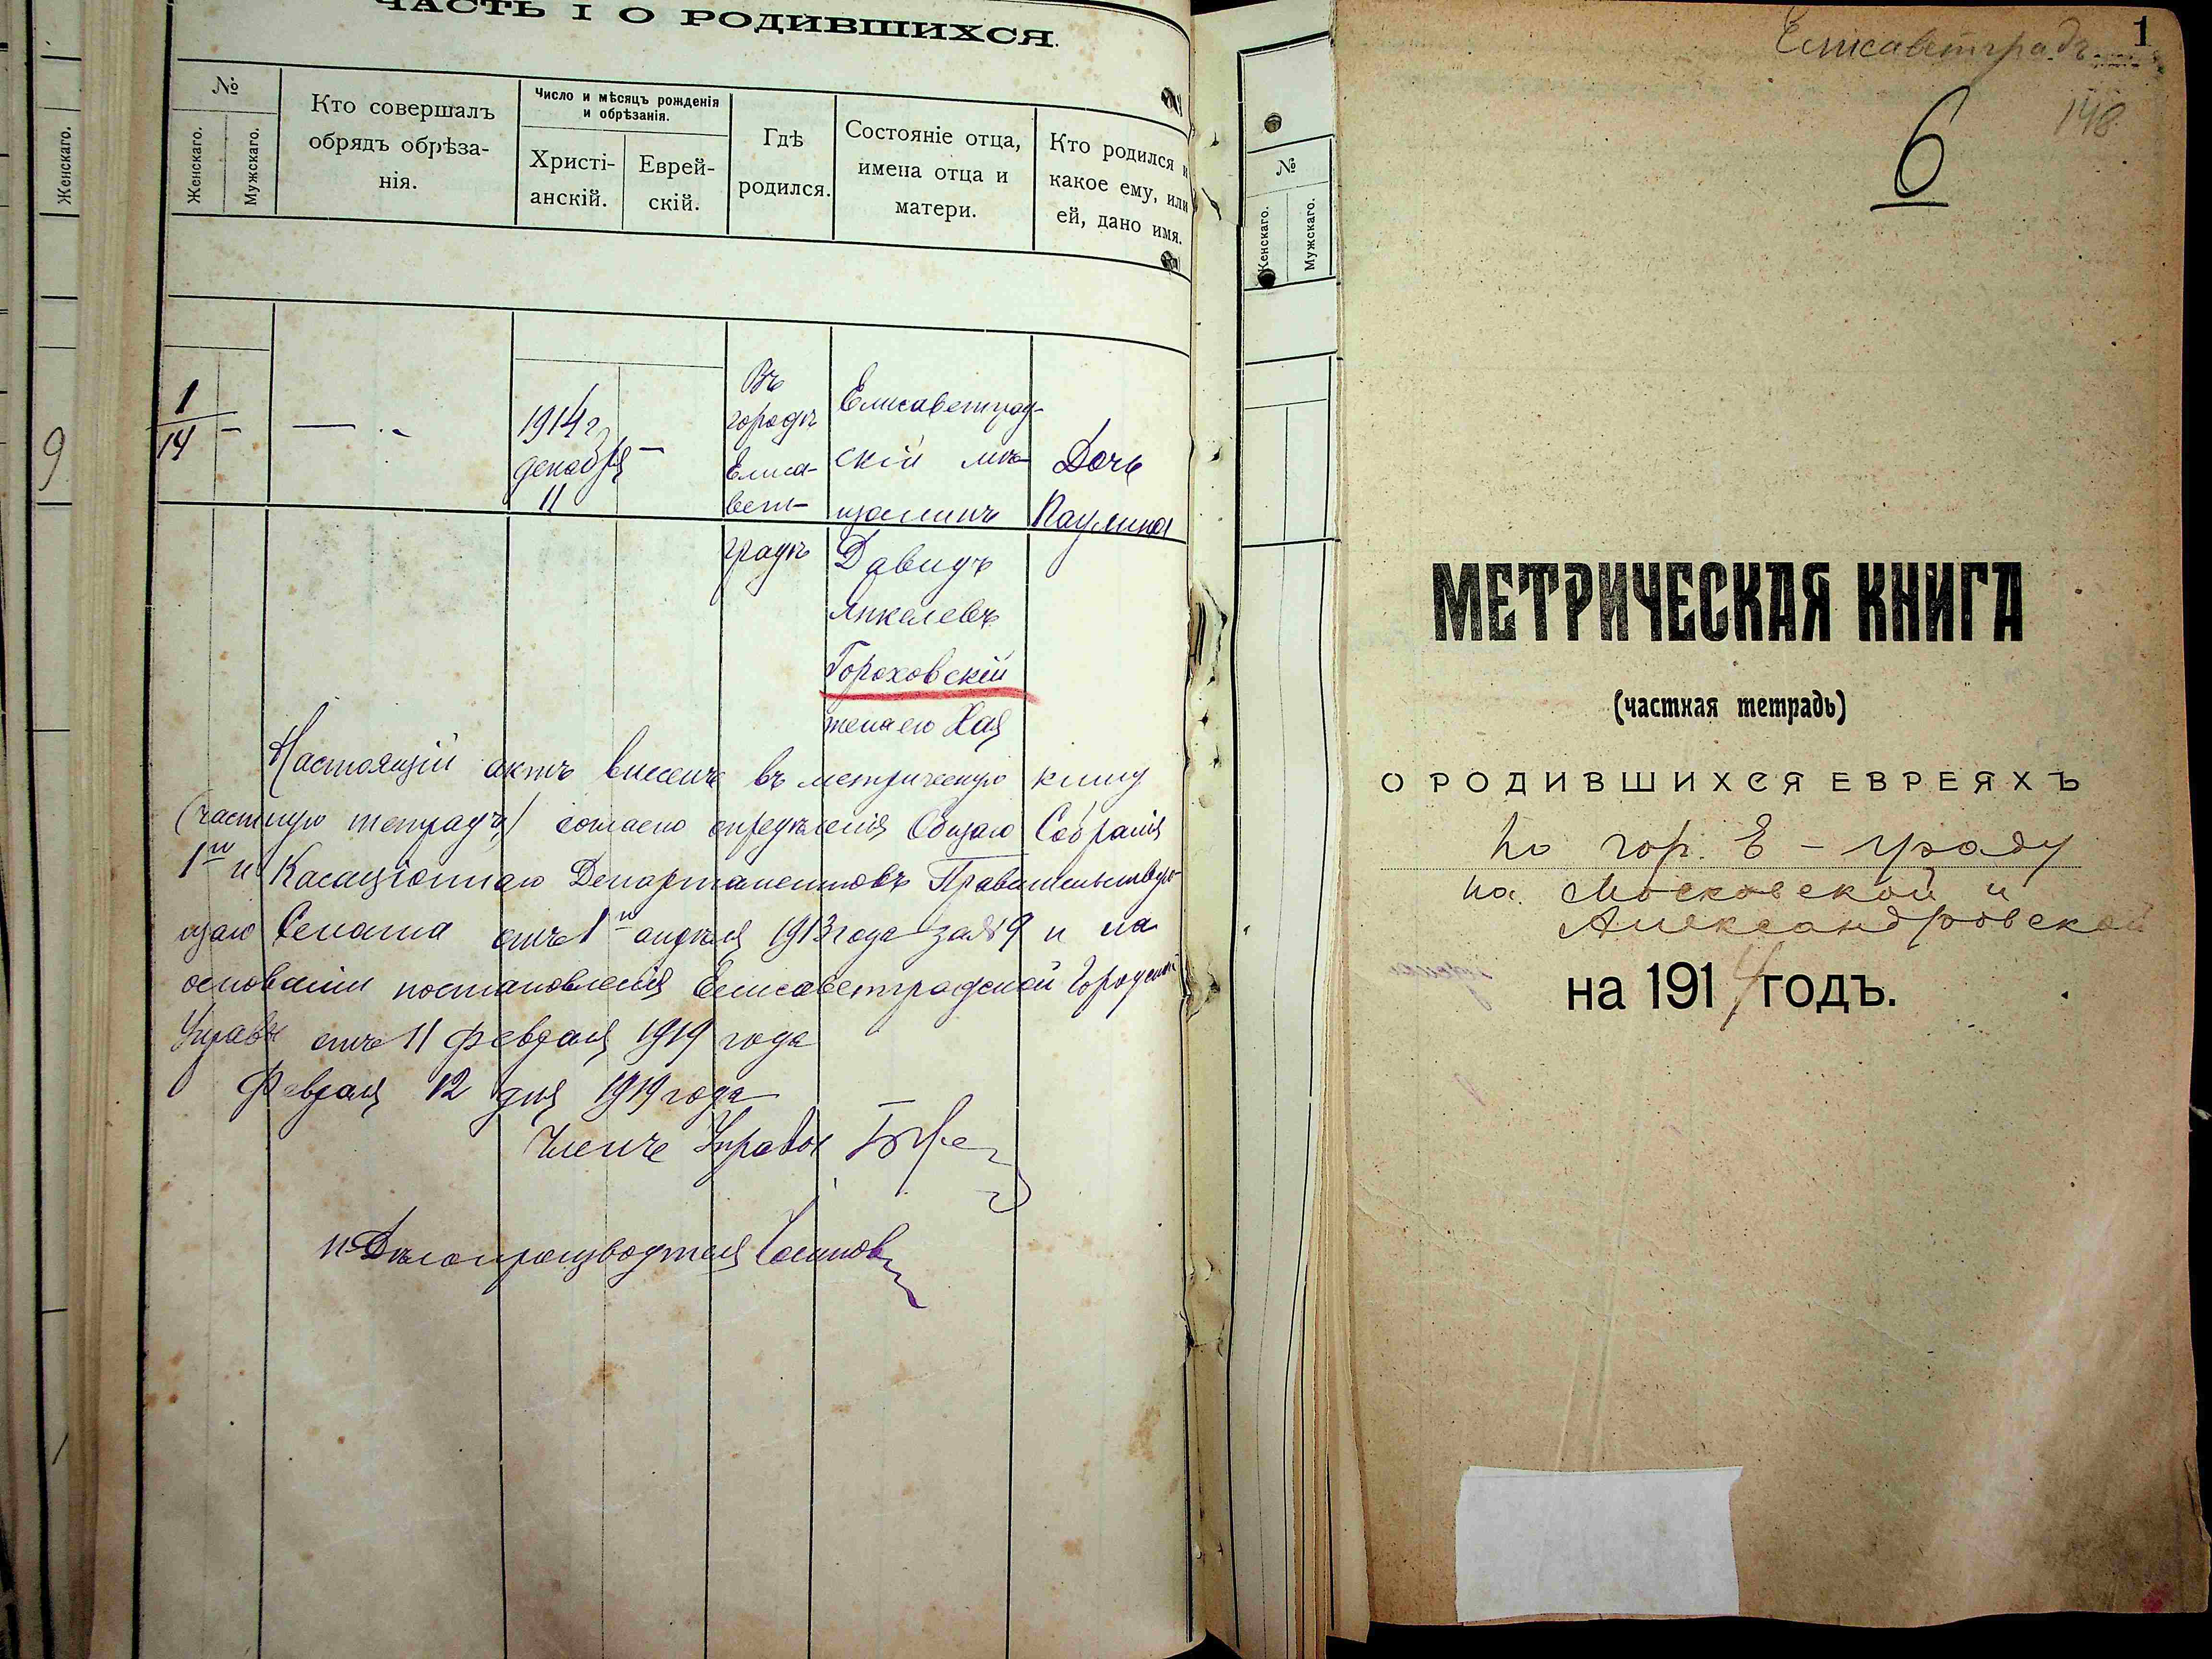 ЧАСТЬ I О РОДИВШИХСЯ.
№
Женскаго.
Мужскаго.
Кто совершалъ
обрядъ обрѣза-
нія.
Число и мѣсяцъ рожденія
и обрѣзанія.
Христі-
анскій.
Еврей-
скій.
Гдѣ
родился.
Состояніе отца,
имена отца и
матери.
Кто родился и
какое ему, или
ей, дано имя.
Женскаго.
9
1
14
—
1914 г
декабря
11
—
Въ
городѣ
Елиса-
вет-
градѣ
Елисаветград-
скій мѣ-
щанинъ
Давидъ
Янкелевъ
Гороховскій
жена его Хая
Дочь
Паулина
Настоящій актъ внесенъ въ метрическую книгу
(частную тетрадь) согласно опредѣленія Общаго Собранія
1го и Касаціоннаго Департаментовъ Правительствую-
щаго Сената отъ 1го апрѣля 1913 года за № 9 и на
основаніи постановленія Елисаветградской Городской
Управы отъ 11 февраля 1919 года
Февраля 12 дня 1919 года
Членъ Управы
и. Дѣлопроизводителя
№
Женскаго.
Мужскаго.
Елисаветградъ
1
148
6
МЕТРИЧЕСКАЯ КНИГА
(частная тетрадь)
О РОДИВШИХСЯ ЕВРЕЯХЪ
по гор. Е-граду
на Московской и
Александровской
на 1914 годъ.